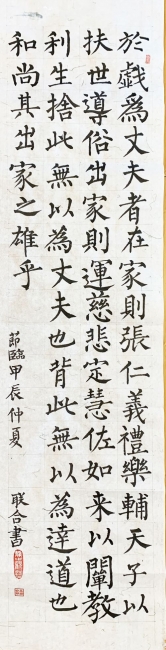 於戲為丈夫者在家則張仁義禮樂輔天子以
扶世導俗出家則運慈悲定慧佐如来以闡教
利生捨此無以為丈夫也背此無以為達道也
和尚其出家之雄乎
節臨甲辰仲夏
联合書